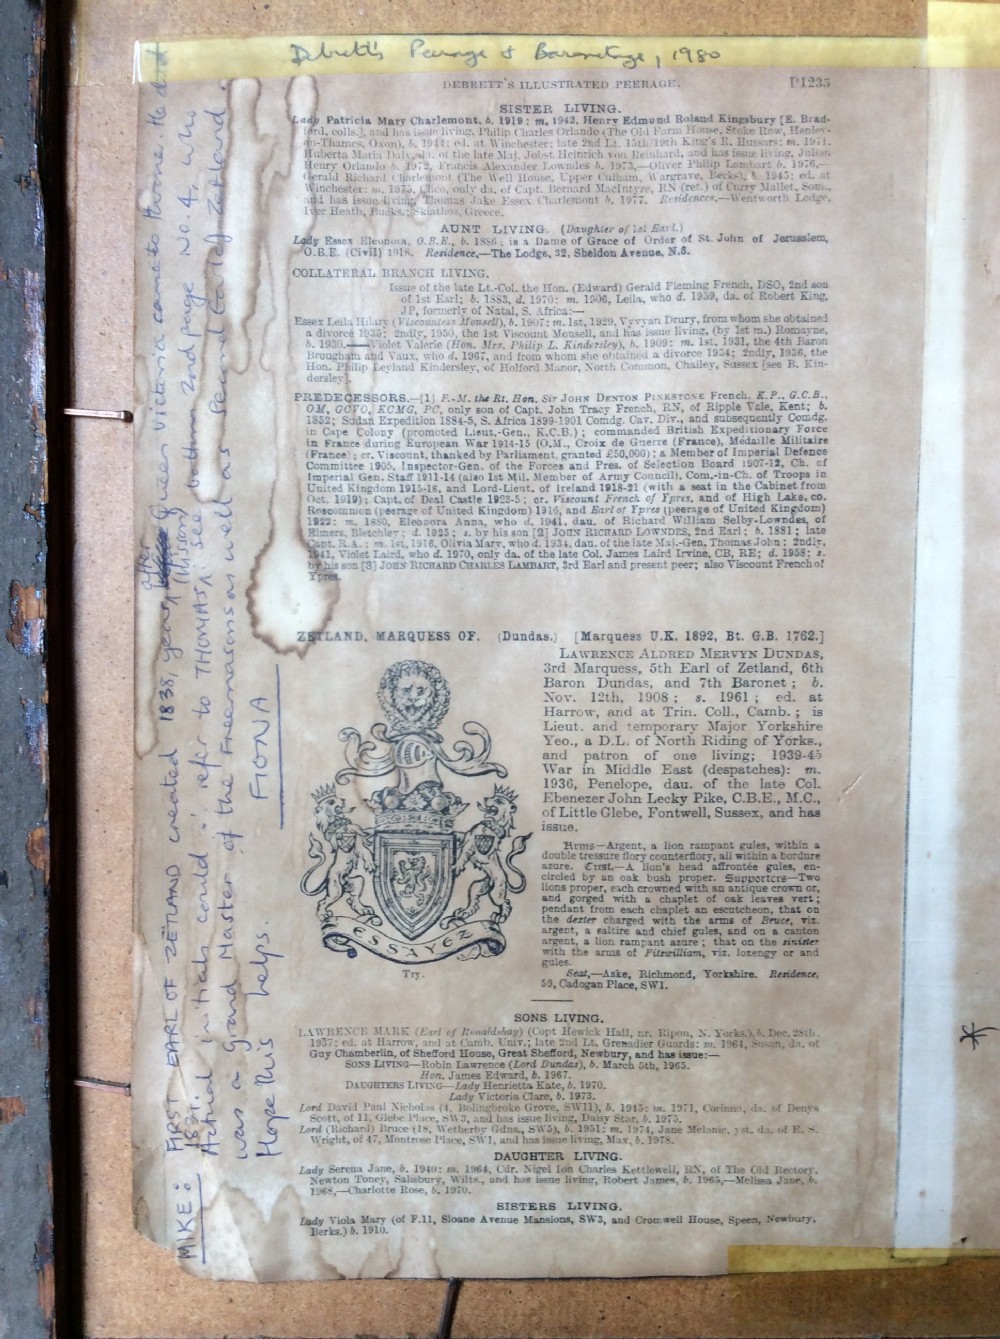 Debrett's Peerage & Baronetage, 1980
DEBRETT'S ILLUSTRATED PEERAGE.
P1235
SISTER LIVING.
Lady Patricia Mary Charlemont, b. 1919: m. 1942, Henry Edmund Roland Kingsbury [E. Brad-
ford, colls.], and has issue living, Philip Charles Orlando (The Old Farm House, Stoke Row, Henley-
on-Thames, Oxon), b. 1944: ed. at Winchester; late 2nd Lt. 15th/19th King's R. Hussars: m. 1971,
Huberta Maria Daly, da. of the late Maj. Jobst Heinrich von Reinhard, and has issue living, Julian
Henry Orlando b. 1972, Francis Alexander Lowndes b. 1973,—Oliver Philip Lambart b. 1976,—
Gerald Richard Charlemont (The Well House, Upper Culham, Wargrave, Berks), b. 1945: ed. at
Winchester: m. 1975, Cleo, only da. of Capt. Bernard MacIntyre, RN (ret.) of Curry Mallet, Som.,
and has issue living, Thomas Jake Essex Charlemont b. 1977. Residences,—Wentworth Lodge,
Iver Heath, Bucks.; Skiathos, Greece.
AUNT LIVING. (Daughter of 1st Earl.)
Lady Essex Eleonora, O.B.E., b. 1886; is a Dame of Grace of Order of St. John of Jerusalem,
O.B.E. (Civil) 1918. Residence,—The Lodge, 32, Sheldon Avenue, N.6.
COLLATERAL BRANCH LIVING.
Issue of the late Lt.-Col. the Hon. (Edward) Gerald Fleming French, DSO, 2nd son
of 1st Earl; b. 1883, d. 1970: m. 1906, Leila, who d. 1959, da. of Robert King,
JP, formerly of Natal, S. Africa:—
Essex Leila Hilary (Viscountess Monsell), b. 1907: m. 1st, 1929, Vyvyan Drury, from whom she obtained
a divorce 1935: 2ndly, 1950, the 1st Viscount Monsell, and has issue living, (by 1st m.) Romayne,
b. 1930.—Violet Valerie (Hon. Mrs. Philip L. Kindersley), b. 1909: m. 1st, 1931, the 4th Baron
Brougham and Vaux, who d. 1967, and from whom she obtained a divorce 1934: 2ndly, 1936, the
Hon. Philip Leyland Kindersley, of Holford Manor, North Common, Chailey, Sussex [see B. Kin-
dersley].
PREDECESSORS.—[1] F.-M. the Rt. Hon. Sir JOHN DENTON PINKSTONE French, K.P., G.C.B.,
OM, GCVO, KCMG, PC, only son of Capt. John Tracy French, RN, of Ripple Vale, Kent; b.
1852; Sudan Expedition 1884-5, S. Africa 1899-1901 Comdg. Cav. Div., and subsequently Comdg.
in Cape Colony (promoted Lieut.-Gen., K.C.B.); commanded British Expeditionary Force
in France during European War 1914-15 (O.M., Croix de Guerre (France), Médaille Militaire
(France); cr. Viscount, thanked by Parliament, granted £50,000); a Member of Imperial Defence
Committee 1905, Inspector-Gen. of the Forces and Pres. of Selection Board 1907-12, Ch. of
Imperial Gen. Staff 1911-14 (also 1st Mil. Member of Army Council), Com.-in-Ch. of Troops in
United Kingdom 1915-18, and Lord-Lieut. of Ireland 1918-21 (with a seat in the Cabinet from
Oct. 1919); Capt. of Deal Castle 1923-5; cr. Viscount French of Ypres, and of High Lake, co.
Roscommon (peerage of United Kingdom) 1916, and Earl of Ypres (peerage of United Kingdom)
1922: m. 1880, Eleonora Anna, who d. 1941, dau. of Richard William Selby-Lowndes, of
Elmers, Bletchley; d. 1925; s. by his son [2] JOHN RICHARD LOWNDES, 2nd Earl; b. 1881; late
Capt. R.A.; m. 1st, 1916, Olivia Mary, who d. 1934, dau. of the late Maj.-Gen. Thomas John: 2ndly,
1941, Violet Laird, who d. 1970, only da. of the late Col. James Laird Irvine, CB, RE; d. 1958; s.
by his son [3] JOHN RICHARD CHARLES LAMBART, 3rd Earl and present peer; also Viscount French of
Ypres.
ZETLAND, MARQUESS OF. (Dundas.) [Marquess U.K. 1892, Bt. G.B. 1762.]
LAWRENCE ALDRED MERVYN DUNDAS,
3rd Marquess, 5th Earl of Zetland, 6th
Baron Dundas, and 7th Baronet; b.
Nov. 12th, 1908; s. 1961; ed. at
Harrow, and at Trin. Coll., Camb.; is
Lieut. and temporary Major Yorkshire
Yeo., a D.L. of North Riding of Yorks.,
and patron of one living; 1939-45
War in Middle East (despatches): m.
1936, Penelope, dau. of the late Col.
Ebenezer John Lecky Pike, C.B.E., M.C.,
of Little Glebe, Fontwell, Sussex, and has
issue.
Arms—Argent, a lion rampant gules, within a
double tressure flory counterflory, all within a bordure
azure. Crest,—A lion's head affrontée gules, en-
circled by an oak bush proper. Supporters—Two
lions proper, each crowned with an antique crown or,
and gorged with a chaplet of oak leaves vert;
pendant from each chaplet an escutcheon, that on
the dexter charged with the arms of Bruce, viz.
argent, a saltire and chief gules, and on a canton
argent, a lion rampant azure; that on the sinister
with the arms of Fitzwilliam, viz. lozengy or and
gules.
Seat,—Aske, Richmond, Yorkshire. Residence,
59, Cadogan Place, SW1.
ESSAYEZ
Try.
SONS LIVING.
LAWRENCE MARK (Earl of Ronaldshay) (Copt Hewick Hall, nr. Ripon, N. Yorks.), b. Dec. 28th,
1937; ed. at Harrow, and at Camb. Univ.; late 2nd Lt. Grenadier Guards: m. 1964, Susan, da. of
Guy Chamberlin, of Shefford House, Great Shefford, Newbury, and has issue:—
SONS LIVING—Robin Lawrence (Lord Dundas), b. March 5th, 1965.
Hon. James Edward, b. 1967.
DAUGHTERS LIVING—Lady Henrietta Kate, b. 1970.
Lady Victoria Clare, b. 1973.
Lord David Paul Nicholas (4, Bolingbroke Grove, SW11), b. 1945: m. 1971, Corinna, da. of Denys
Scott, of 11, Glebe Place, SW3, and has issue living, Daisy Star, b. 1975.
Lord (Richard) Bruce (18, Wetherby Gdns., SW5), b. 1951: m. 1974, Jane Melanie, yst. da. of E. S.
Wright, of 47, Montrose Place, SW1, and has issue living, Max, b. 1978.
DAUGHTER LIVING.
Lady Serena Jane, b. 1940: m. 1964, Cdr. Nigel Ion Charles Kettlewell, RN, of The Old Rectory,
Newton Toney, Salisbury, Wilts., and has issue living, Robert James, b. 1965,—Melissa Jane, b.
1968,—Charlotte Rose, b. 1970.
SISTERS LIVING.
Lady Viola Mary (of F.11, Sloane Avenue Mansions, SW3, and Cromwell House, Speen, Newbury,
Berks.) b. 1910.
MIKE: FIRST EARL OF ZETLAND created 1838, year after Queen Victoria came to throne. He died
1839.
Actual initials could (?missing) refer to THOMAS: see bottom 2nd page No. 4. who
was a Grand Master of the Freemasons as well as Second Earl of Zetland.
Hope this helps. FIONA